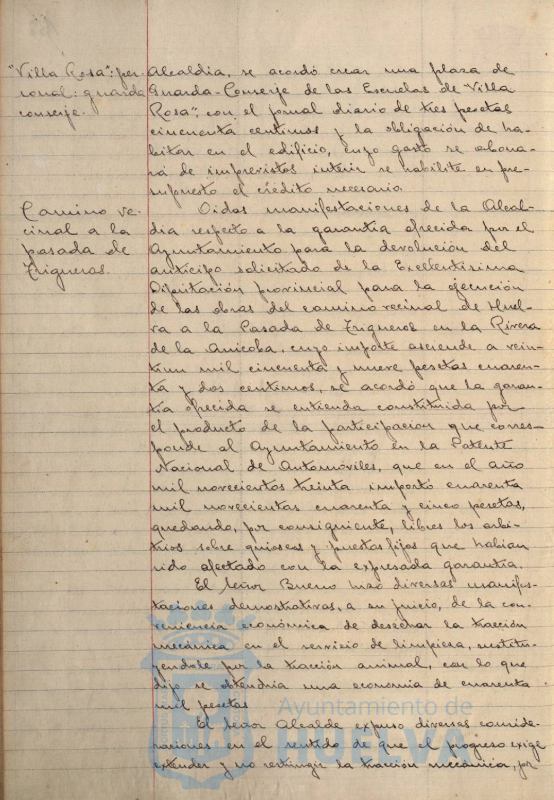 "Villa Rosa": per-
sonal: guarda
conserje.
Alcaldía, se acordó crear una plaza de
Guarda-Conserje de las Escuelas de "Villa
Rosa", con el jornal diario de tres pesetas
cincuenta centimos y la obligación de ha-
bitar en el edificio, cuyo gasto se abona-
rá de imprevistos interin se habilite en pre-
supuesto el crédito necesario.
Camino ve-
cinal a la
pasada de
Trigueros.
Oidas manifestaciones de la Alcal-
dia respecto a la garantia ofrecida por el
Ayuntamiento para la devolución del
anticipo solicitado de la Excelentisima
Diputación provincial para la ejecución
de las obras del camino vecinal de Huel-
va a la Pasada de Trigueros en la Rivera
de la Anicoba, cuyo importe asciende a vein-
tiun mil cincuenta y nueve pesetas cuaren-
ta y dos centimos, se acordó que la garan-
tia ofrecida se entienda constituida por
el producto de la participación que corres-
ponde al Ayuntamiento en la Patente
Nacional de Automóviles, que en el año
mil novecientos treinta importó cuarenta
mil novecientas cuarenta y cinco pesetas,
quedando, por consiguiente, libres los arbi-
trios sobre quioscos y puestos fijos que habian
sido afectados con la expresada garantia.
El Señor Bueno hizo diversas manifes-
taciones demostrativas, a su juicio, de la con-
veniencia económica de desechar la tracción
mecánica en el servicio de limpieza, sustitu-
yendola por la tracción animal, con lo que
dijo se obtendria una economia de cuarenta
mil pesetas
El Señor Alcalde expuso diversas conside-
raciones en el sentido de que el progreso exige
extender y no restringir la tracción mecánica, por
Ayuntamiento de
HUELVA